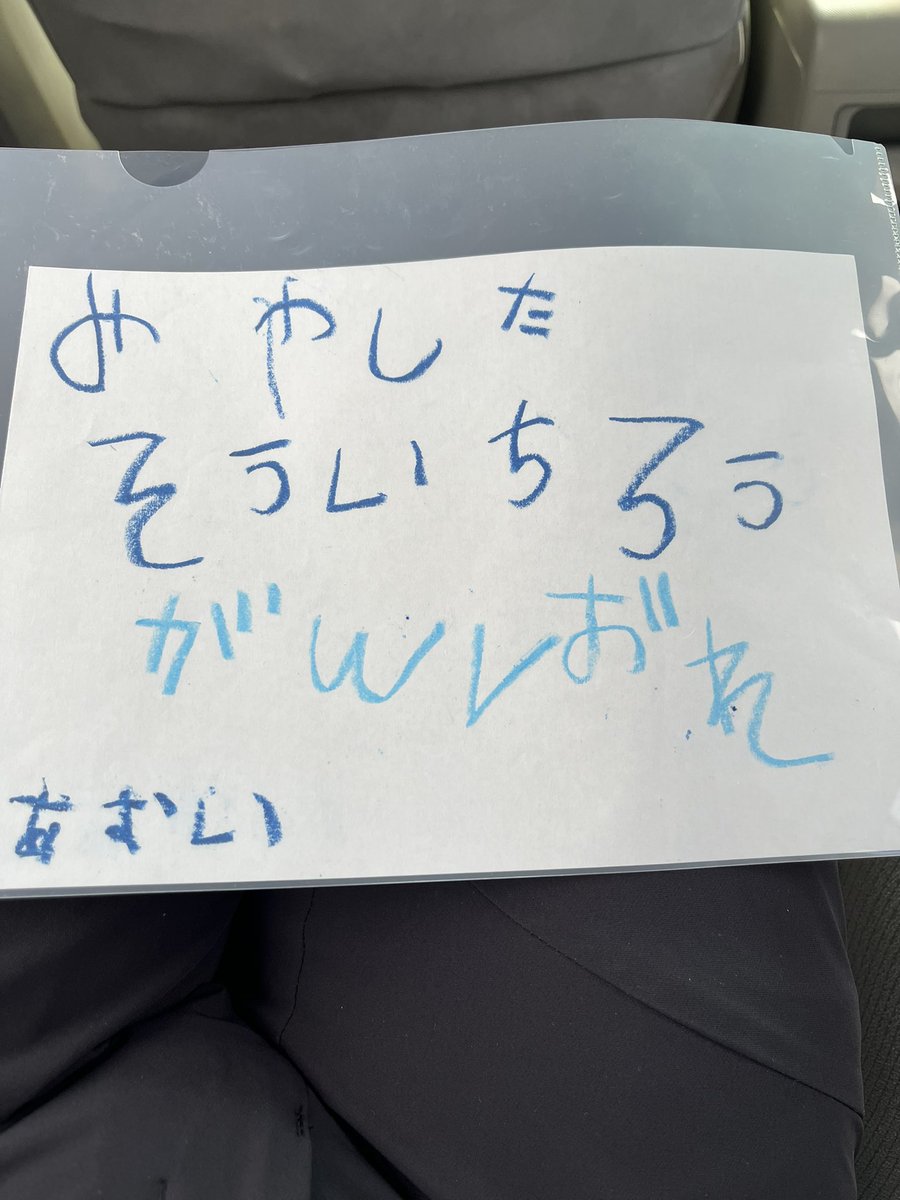 みやした
そういちろう
がんばれ
あおい